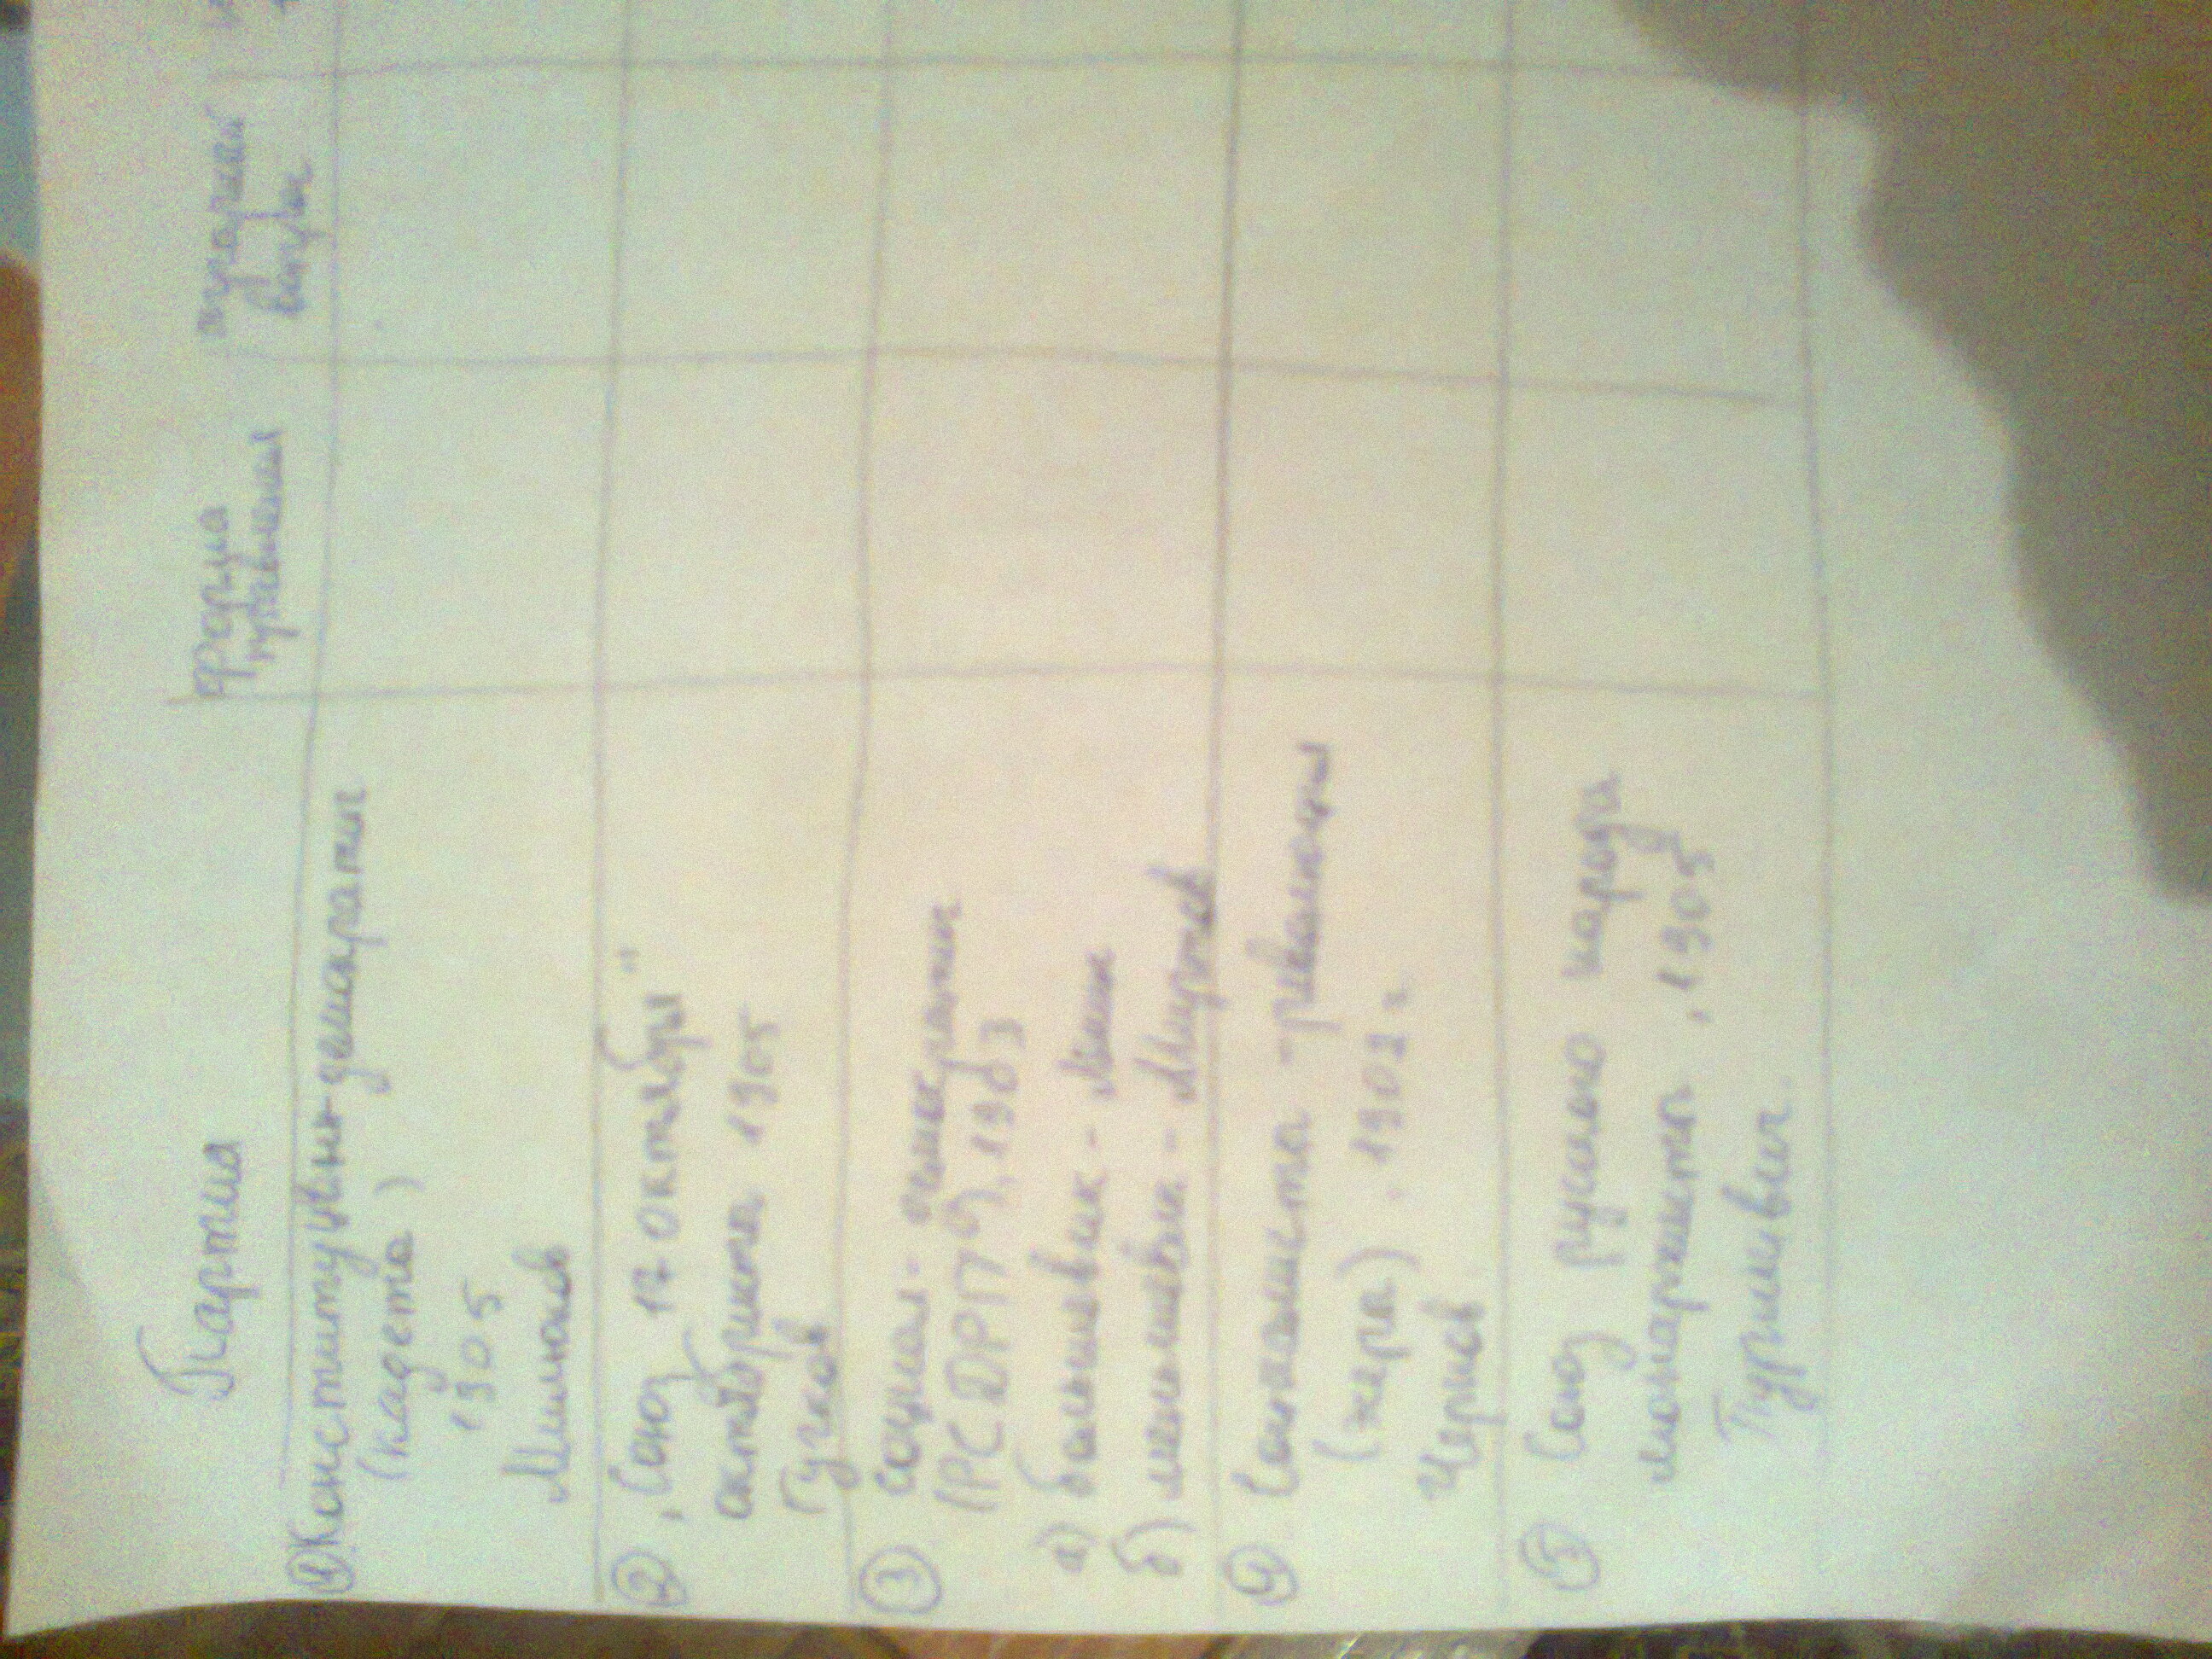 Партия
Форма
правления
аграрный
вопрос
① Конституцион-демократы
(кадеты)
1905
Милюков
② „Союз 17 октября"
октябристы 1905
Гучков
③ социал-демократы
(РСДРП), 1903
а) большевик - Ленин
б) меньшевики - Мартов
④ Социалисты-революцры
(эсеры). 1902 г
Чернов
⑤ Союз русского народа
монархисты, 1905
Пуришкевич.